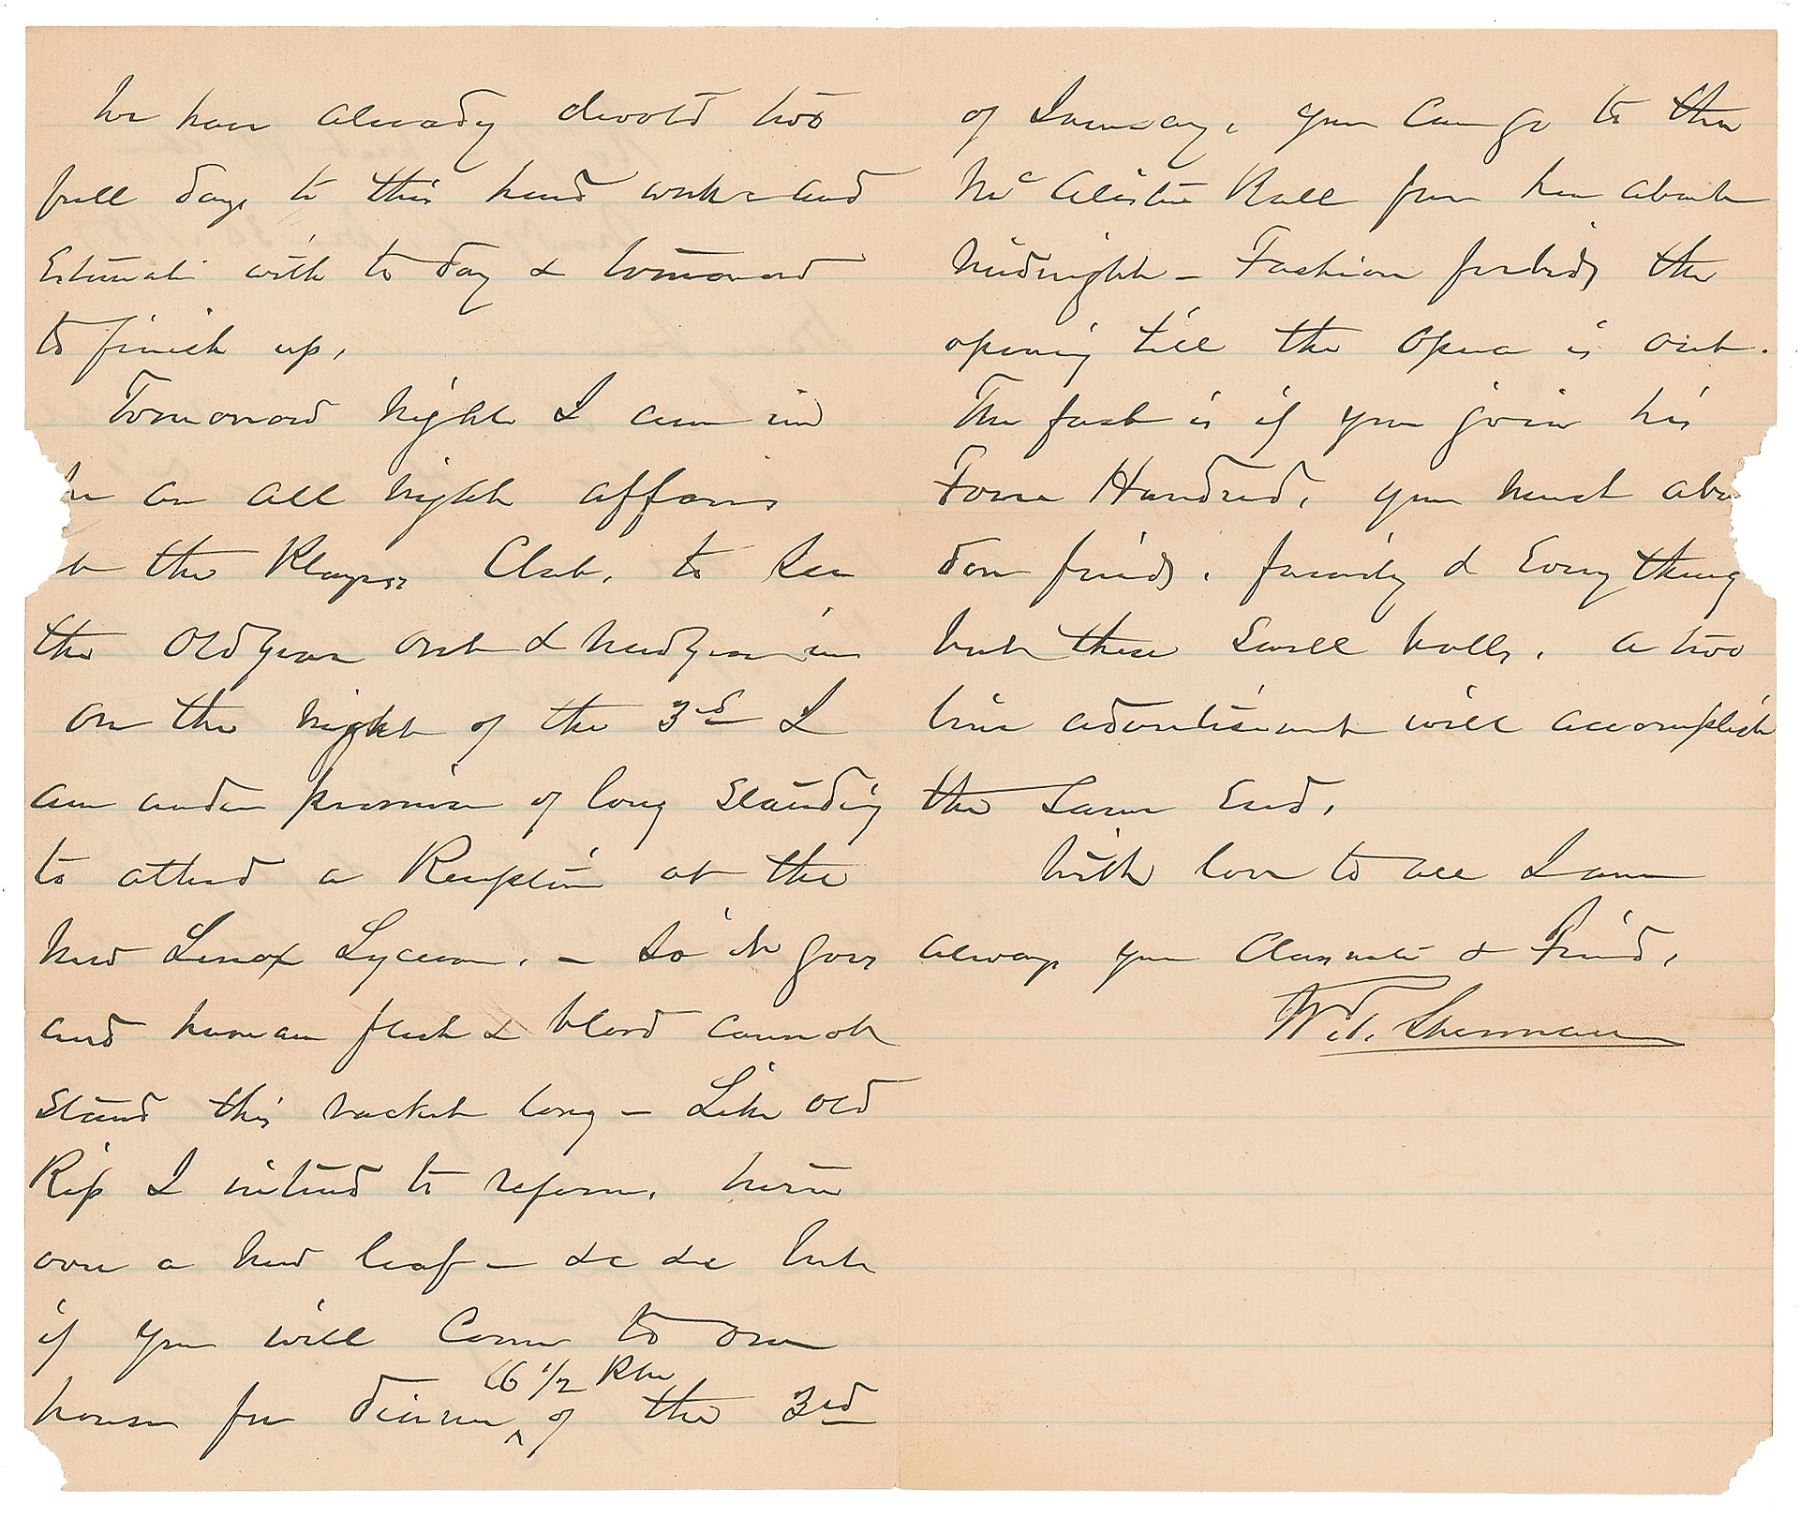 We have already devoted two
full days to this hard work and
Estimate with to day & tomorrow
to finish up.
Tomorrow night I am in
for an all night affair
at the Players Club, to see
the Old Year out & New Year in
On the night of the 3rd I
am under promise of long standing
to attend a Reception at the
New Lenox Lyceum. - So it goes
and human flesh & blood cannot
stand this racket long - Like old
Rip I intend to reform, turn
over a new leaf - &c &c but
if you will Come to our
house for dinner 6 1/2 PM of the 3rd
of January, you Can go to the
McAlister Ball from here about
midnight - Fashion forbids the
opening till the Opera is out.
The fact is if you join his
Four Hundred, you must aban
don friends, family & Every thing
but these Swell balls. A two
line advertisement will accomplish
the Same End.
With love to all I am
always your Classmate & Friend,
W. T. Sherman